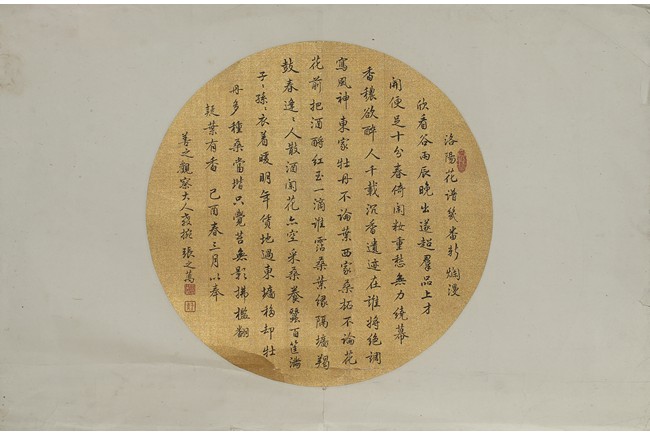 洛陽花譜幾番新爛漫
欣看谷雨辰晚出邃超羣品上才
開便足十分春倚闌妝重愁無力繞幕
香穠欲醉人千載沉香遺迹在誰將絕調
寫風神東家牡丹不論葉西家桑柘不論花
花前把酒酹紅玉一滴誰霑桑葉綠隔墻羯
鼓春逢〻人散酒闌花亦空采桑養蠶百筐滿
子〻孫〻衣着暖明年賃地過東墻移却牡
丹多種桑當堦只覺苔無影拂檻翻
疑葉有香 己酉春三月以奉
善之觀察大人教按 張之萬